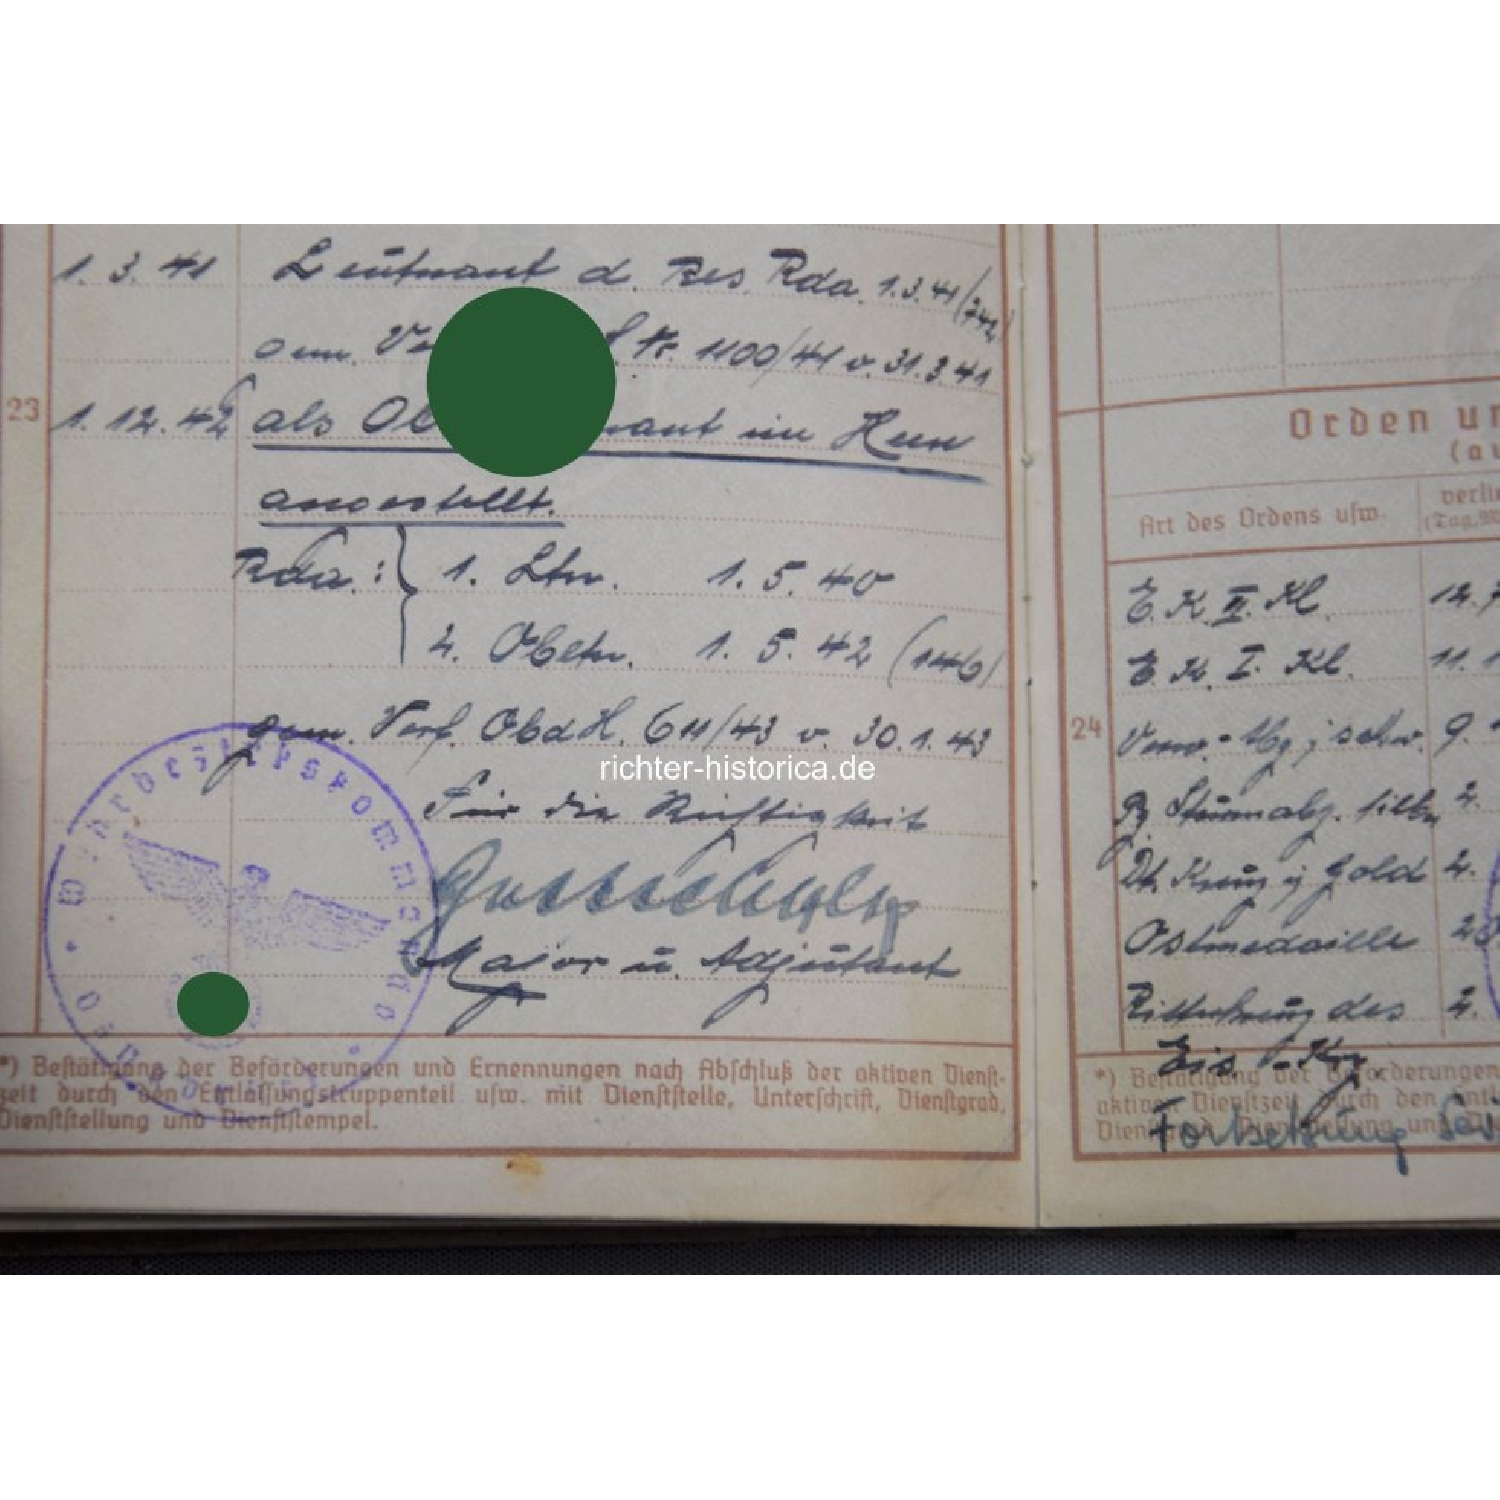 1. 3. 41 Leutnant d. Res. Rda. 1.3.41 (742)
gem. Nr. 1100/41 v. 31.3.41
23 1. 12. 42 als im Heer
angestellt.
Rda.: 1. Ltn. 1. 5. 40
2. Obltn. 1. 5. 42 (146)
gem. Verf. ObdH. 611/43 v. 30.1.43
richter-historica.de
Für die Richtigkeit
Major u. Adjutant
Wehrbezirkskommando
*) Bestätigung der Beförderungen und Ernennungen nach Abschluß der aktiven Dienst-
zeit durch den Entlassungstruppenteil usw. mit Dienststelle, Unterschrift, Dienstgrad,
Dienststellung und Dienststempel.
Orden un
(au
Art des Ordens usw.
verlie
(Tag, M
E. K. II. Kl. 12.7
E. K. I. Kl. 11. 1
24 Verw.-Abz. i. schw. 9.
Pz. Sturmabz. silber 2.
Dt. Kreuz i. Gold 2.
Ostmedaille 20
Ritterkreuz des 2.
Eis. Krz.
*) Bestätigung der Beförderungen
aktiven Dienstzeit durch den Entl
Dienstgrad, Dienststellung und Di
Fortsetzung